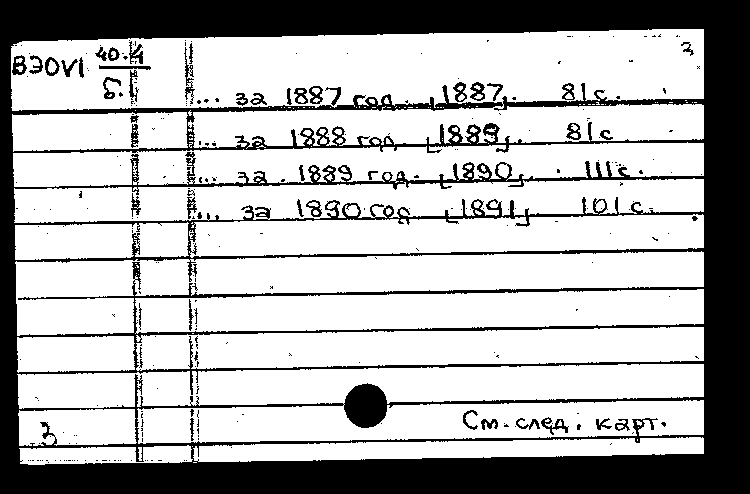 3
ВЭОVI 40.4
б.
... за 1887 год. [1887]. 81 с.
... за 1888 год [1889]. 81 с
... за 1889 год. [1890]. 111 с.
... за 1890 год [1891]. 101 с.
См. след. карт.
3